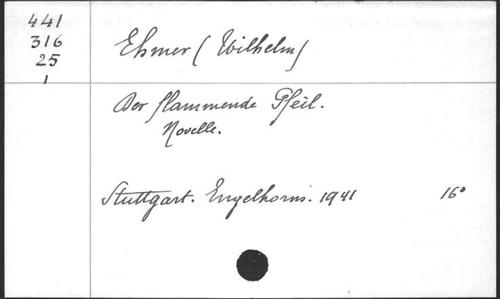 441
316
25
1
Ehmer (Wilhelm)
Der flammende Pfeil.
Novelle.
Stuttgart. Engelhorns. 1941 16°